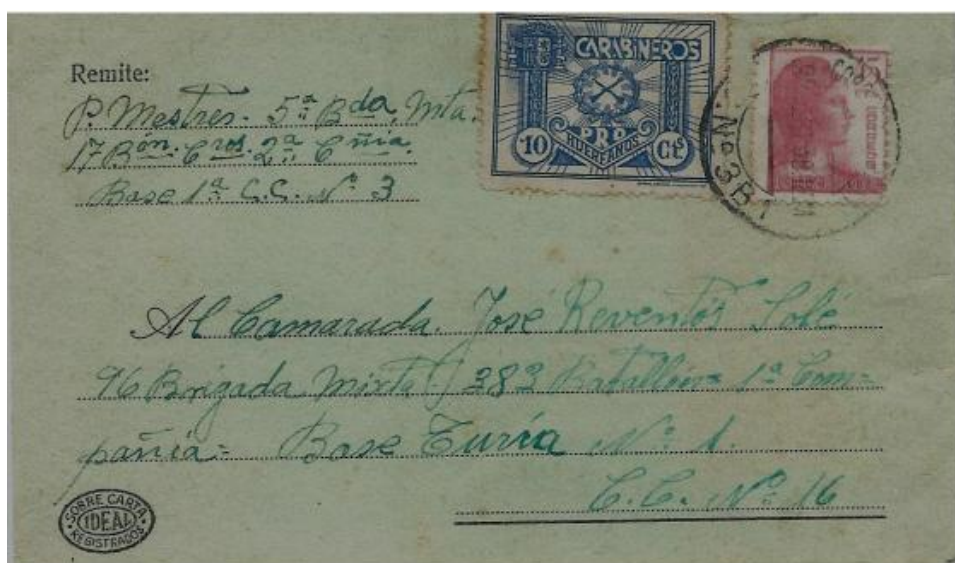 Remite:
P. Mestres. 5ª Bda. Mta.
17 Bón. Cros. 2ª Cñia.
Base 1ª C.C. Nº 3
CARABINEROS
PRO
HUERFANOS
10 Cts
Al Camarada José Reventós Solé
96 Brigada Mixta / 382 Batallón 1ª Com-
pañia- Base Turia Nº 1.
C.C. Nº 16
SOBRE CARTA
IDEAL
REGISTRADOS